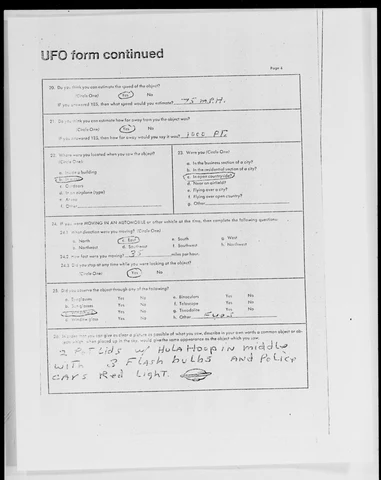 UFO form continued
Page 4
20. Do you think you can estimate the speed of the object?
(Circle One) Yes No
IF you answered YES, then what speed would you estimate? 75 M.P.H.
21. Do you think you can estimate how far away from you the object was?
(Circle One) Yes No
IF you answered YES, then how far away would you say it was? 1000 FT.
22. Where were you located when you saw the object?
(Circle One):
a. Inside a building
b. In a car
c. Outdoors
d. In an airplane (type)
e. At sea
f. Other
23. Were you (Circle One)
a. In the business section of a city?
b. In the residential section of a city?
c. In open countryside?
d. Near an airfield?
e. Flying over a city?
f. Flying over open country?
g. Other
24. IF you were MOVING IN AN AUTOMOBILE or other vehicle at the time, then complete the following questions:
24.1 What direction were you moving? (Circle One)
a. North c. East e. South g. West
b. Northeast d. Southeast f. Southwest h. Northwest
24.2 How fast were you moving? 35 miles per hour.
24.3 Did you stop at any time while you were looking at the object?
(Circle One) Yes No
25. Did you observe the object through any of the following?
a. Eyeglasses Yes No e. Binoculars Yes No
b. Sunglasses Yes No f. Telescope Yes No
Yes No g. Theodolite Yes No
d. Window glass Yes No h. Other
26. In order that you can give as clear a picture as possible of what you saw, describe in your own words a common object or objects which, when placed up in the sky, would give the same appearance as the object which you saw.
2 Pot Lids w/ Hula Hoop in middle
with 3 Flash bulbs and Police
cars Red Light.